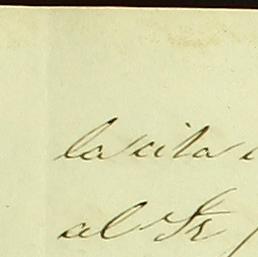 la cita
al Sr